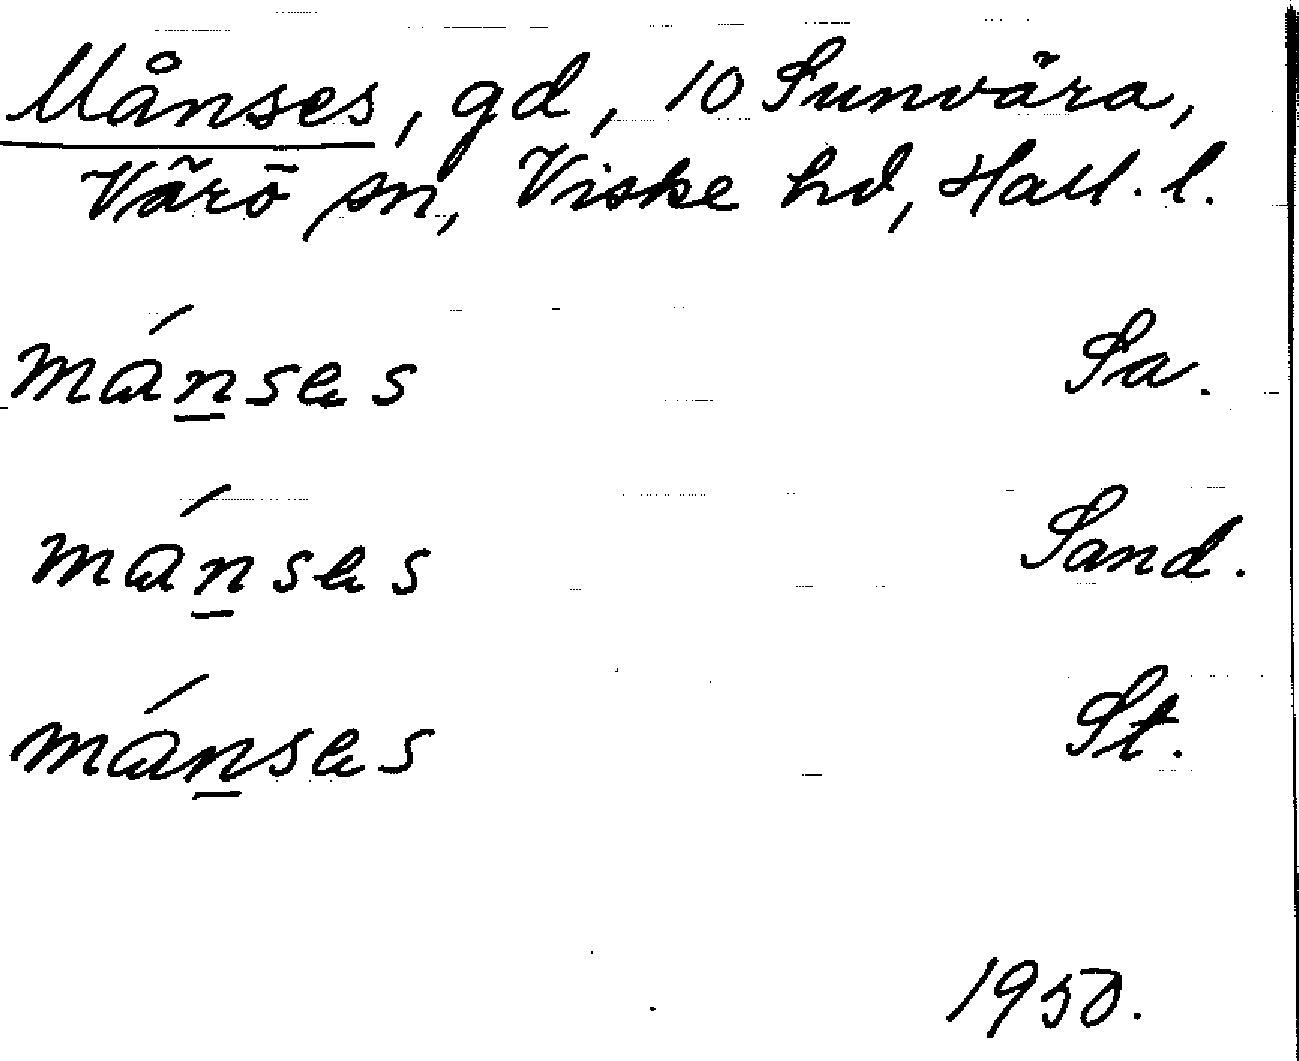 Månses, gd, 10 Sunvära,
Värö sn, Viske hd, Hall. l.
mánses Sa.
mánses Sand.
mánses St.
1950.